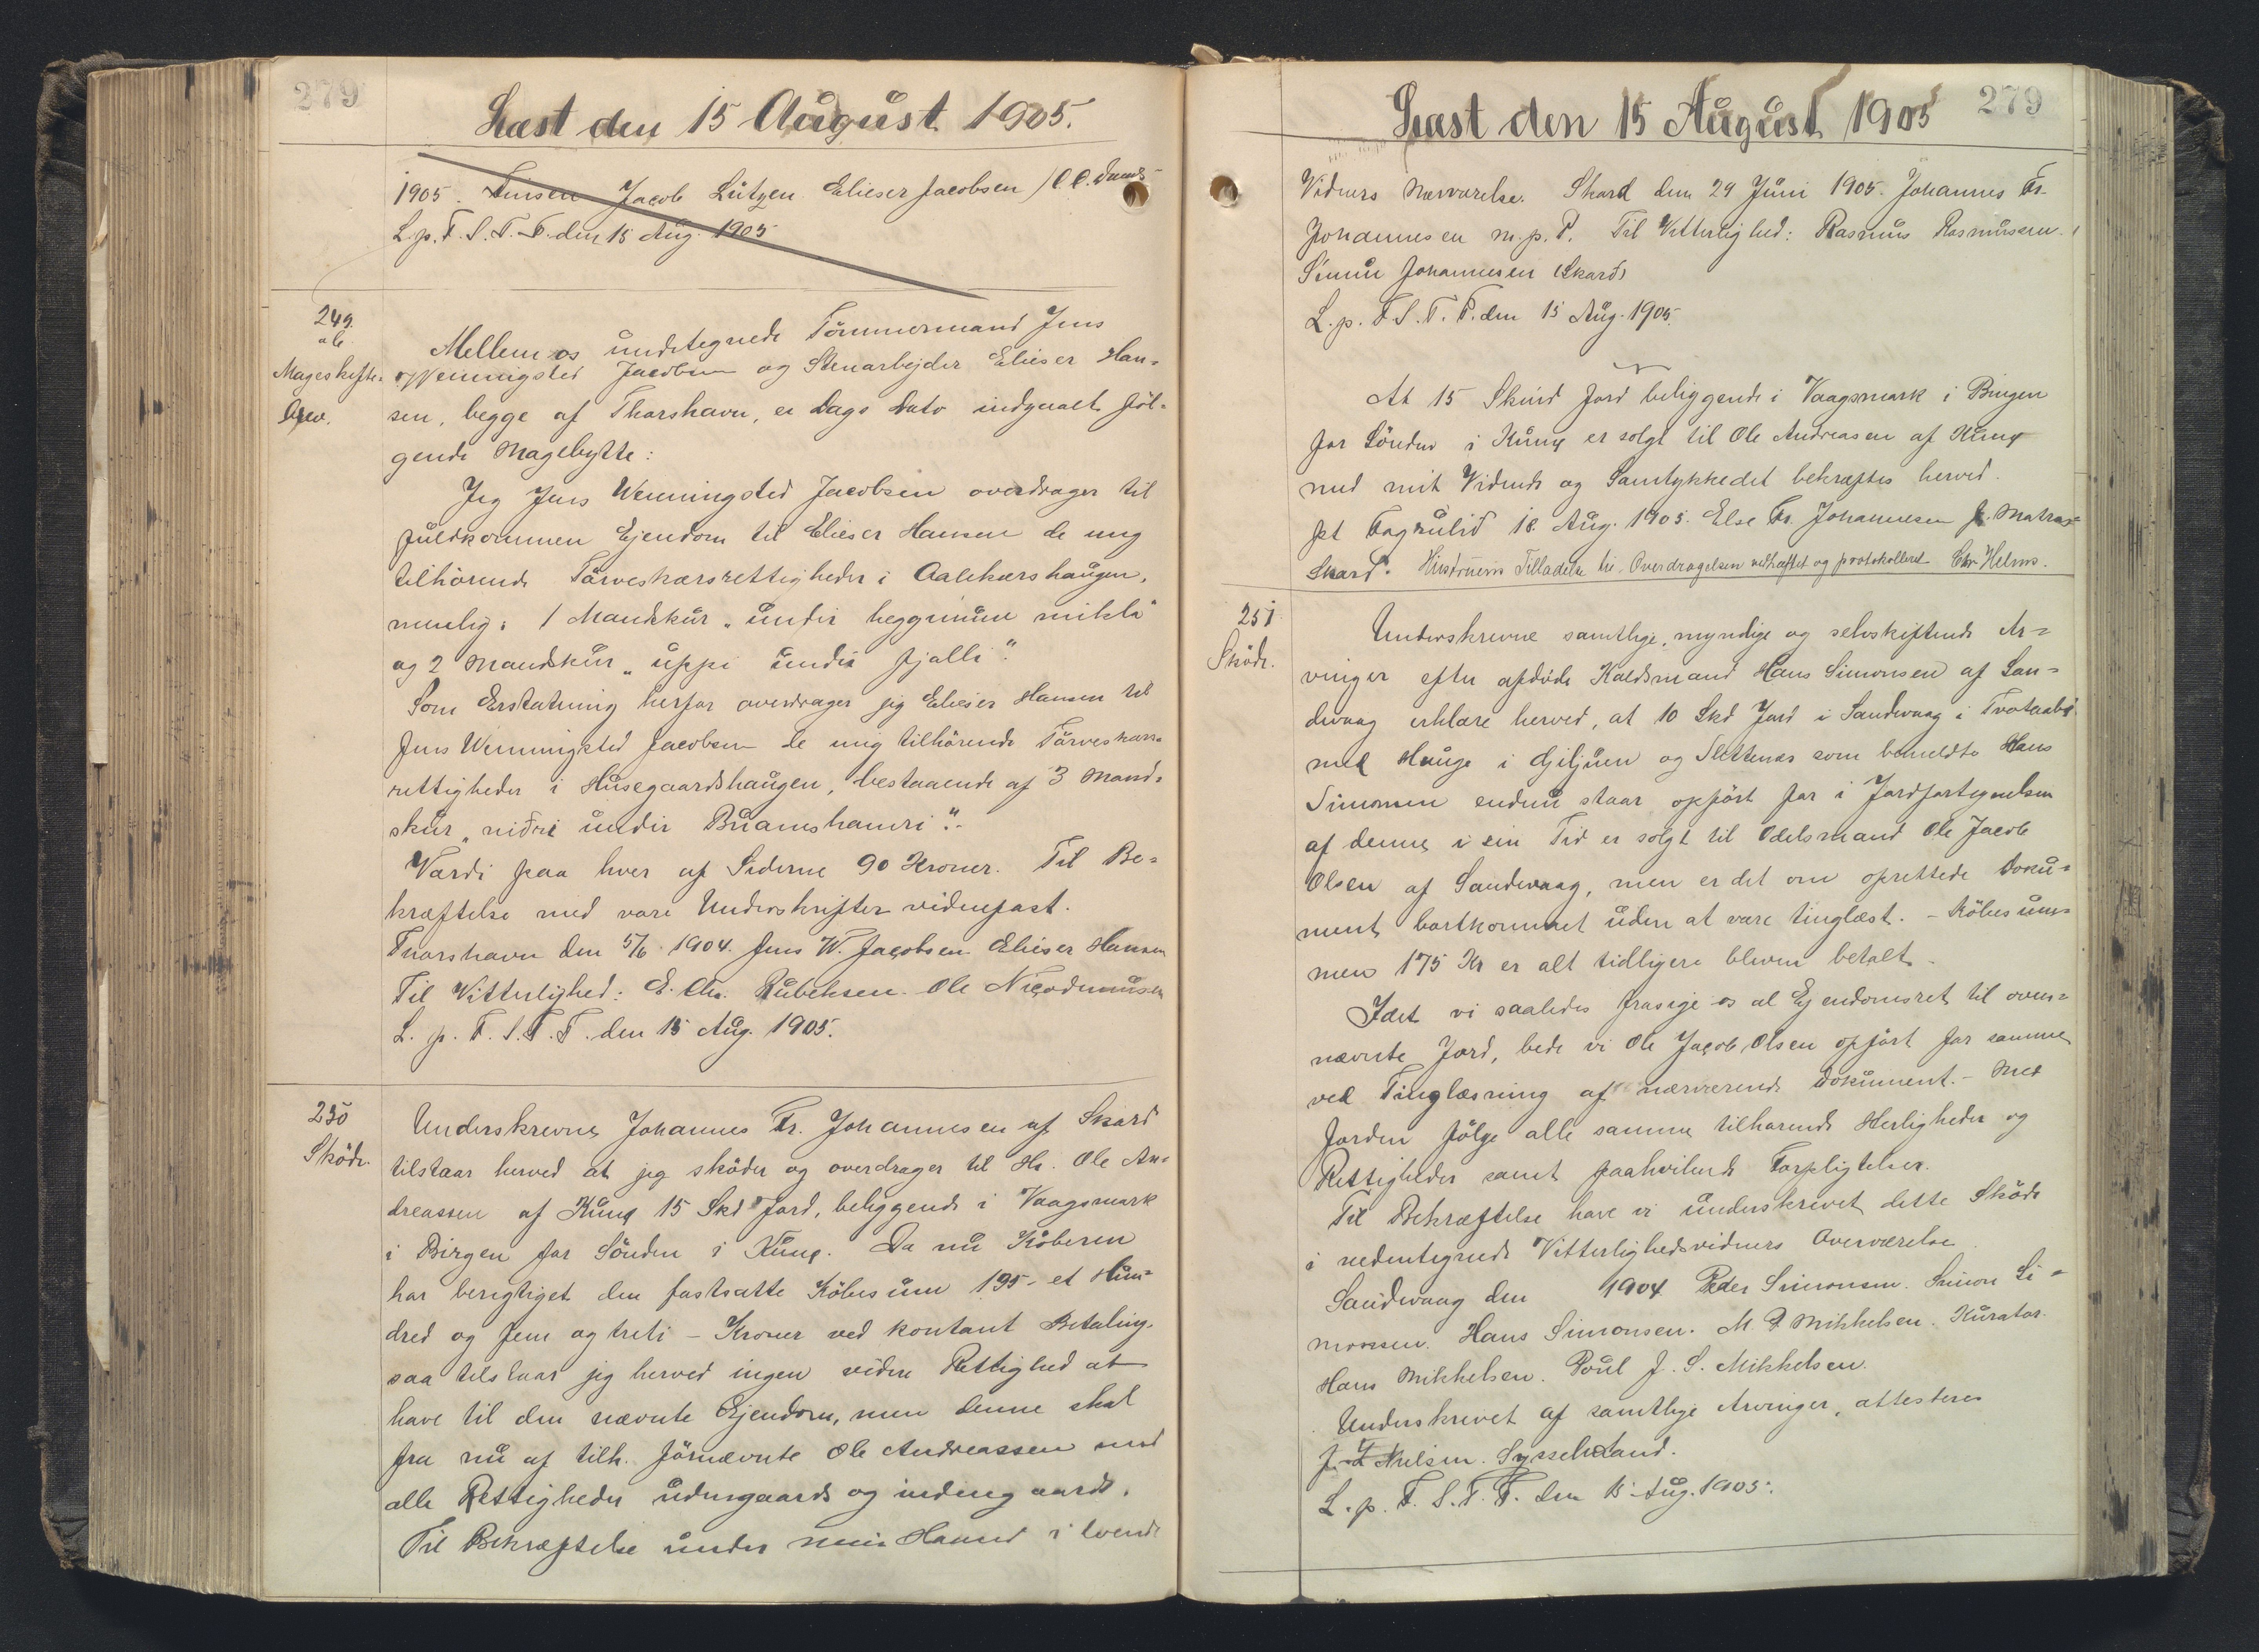 279
Læst den 15 August 1905.
1905. Jensen Jacob Lützen Elieser Jacobsen
L. p. F. S. T. F. den 15 Aug. 1905
249.
ab.
Mageskifte-
brev.
Mellem os undertegnede Tömmermand Jens
Wenningsted Jacobsen og Stenarbejder Elieser Han-
sen, begge af Thorshavn, er Dags Dato indgaaet föl-
gende Magebytte:
Jeg Jens Wenningsted Jacobsen overdrager til
fuldkommen Ejendom til Elieser Hansen de mig
tilhörende Törveskærsrettigheder i Aalekærshaugen,
nemlig: 1 Mandskur „undir heygnum mikla"
og 2 Mandskur „uppi undir fjalli".
Som Erstatning herfor overdrager jeg Elieser Hansen til
Jens Wenningsted Jacobsen de mig tilhörende Törveskærs-
rettigheder i Husegaardshaugen, bestaaende af 3 Mand-
skur „niðri undir Brúarshamri".-
Værdi paa hver af Siderne 90 Kroner. Til Be-
kræftelse med vore Underskrifter vidnefast.
Thorshavn den 5/6 1904. Jens W. Jacobsen Elieser Hansen
Til Vitterlighed: E. Chr. Rubeksen. Ole Nicodemusen
L. p. F. S. T. F. den 15 Aug. 1905.
250
Sköde.
Underskrevne Johannes Fr. Johannesen af Skard
tilstaar herved at jeg sköder og overdrager til Hr. Ole An-
dreassen af Kunø 15 Skd Jord, beliggende i Vaagsmark
i Birgen for Sönden i Kunø. Da nu Köberen
har berigtiget den fastsatte Köbesum 195 - et Hun-
dred og fem og treti - Kroner ved kontant Betaling,
saa tilstaar jeg herved ingen videre Rettighed at
have til den nævnte Ejendom, men denne skal
fra nu af tilh. förnævnte Ole Andreassen med
alle Rettigheder udengaards og indengaards.
Til Bekræftelse under min Haand i tvende
Læst den 15 August 1905
279
Vidners Nærværelse. Skard den 29 Juni 1905. Johannes Fr.
Johannesen m. p. P. Til Vitterlighed: Rasmus Rasmussen.
Simun Johannesen (Skard)
L. p. F. S. T. F. den 15 Aug. 1905.
At 15 Skind Jord beliggende i Vaagsmark i Bingen
for Sönden i Kunø er solgt til Ole Andreasen af Kunø
med mit Vidende og Samtykke det bekræftes herved.
pt Fagralid 18. Aug. 1905. Else Fr. Johannesen f. Matras-
Skard. Hustruens Tilladelse til Overdragelsen vedhæftet og protokolleret Chr Helms.
251
Sköde.
Underskrevne samtlige, myndige og selvskiftende Ar-
vinger efter afdöde Kaldsmand Hans Simonsen af San-
devaag erklære herved, at 10 Skd Jord i Sandevaag i Tvotaabö
med Hauge i Giljuen og Slettenæs som bemeldte Hans
Simonsen endnu staar opfört for i Jordfortegnelsen
af denne i sin Tid er solgt til Odelsmand Ole Jacob
Olsen af Sandevaag, men er det om oprettede Doku-
ment bortkommet uden at være tinglæst. - Köbesum-
men 175 Kr er alt tidligere bleven betalt -
Idet vi saaledes frasige os al Ejendomsret til oven-
nævnte Jord, bede vi Ole Jacob Olsen opfört for samme
ved Tinglæsning af nærværende Dokument. - Med
Jorden fölge alle samme tilhørende Herligheder og
Rettigheder samt paahvilende Forpligtelser.
Til Bekræftelse have vi underskrevet dette Sköde
i nedentegnede Vitterlighedsvidners Overværelse.
Sandevaag den 1904 Peder Simonsen. Simon Si-
monsen. Hans Simonsen. M P Mikkelsen. Kurator.
Hans Mikkelsen. Poul J. S. Mikkelsen.
Underskrevet af samtlige Arvinger, attesteres
Nielsen. Sysselmand.
L. p. F. S. T. F. den 15 Aug. 1905.